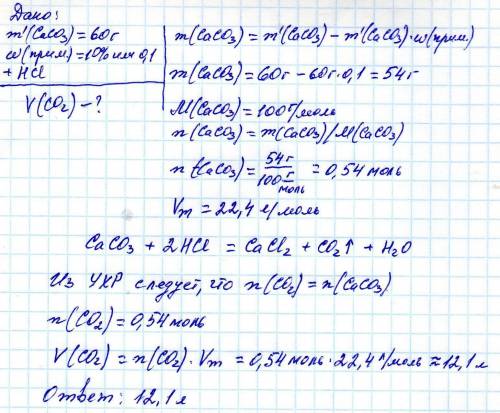 Дано:
m'(CaCO₃) = 60г
ω(прим) = 10% или 0,1
+ HCl
V(CO₂) – ?
m(CaCO₃) = m'(CaCO₃) – m'(CaCO₃)·ω(прим)
m(CaCO₃) = 60г – 60г·0,1 = 54г
M(CaCO₃) = 100 г/моль
n(CaCO₃) = m(CaCO₃)/M(CaCO₃)
n(CaCO₃) = 54г / 100 г/моль = 0,54 моль
Vm = 22,4 л/моль
CaCO₃ + 2HCl = CaCl₂ + CO₂↑ + H₂O
Из УХР следует, что n(CO₂) = n(CaCO₃)
n(CO₂) = 0,54 моль
V(CO₂) = n(CO₂)·Vm = 0,54 моль·22,4 л/моль ≈ 12,1 л
Ответ: 12,1 л